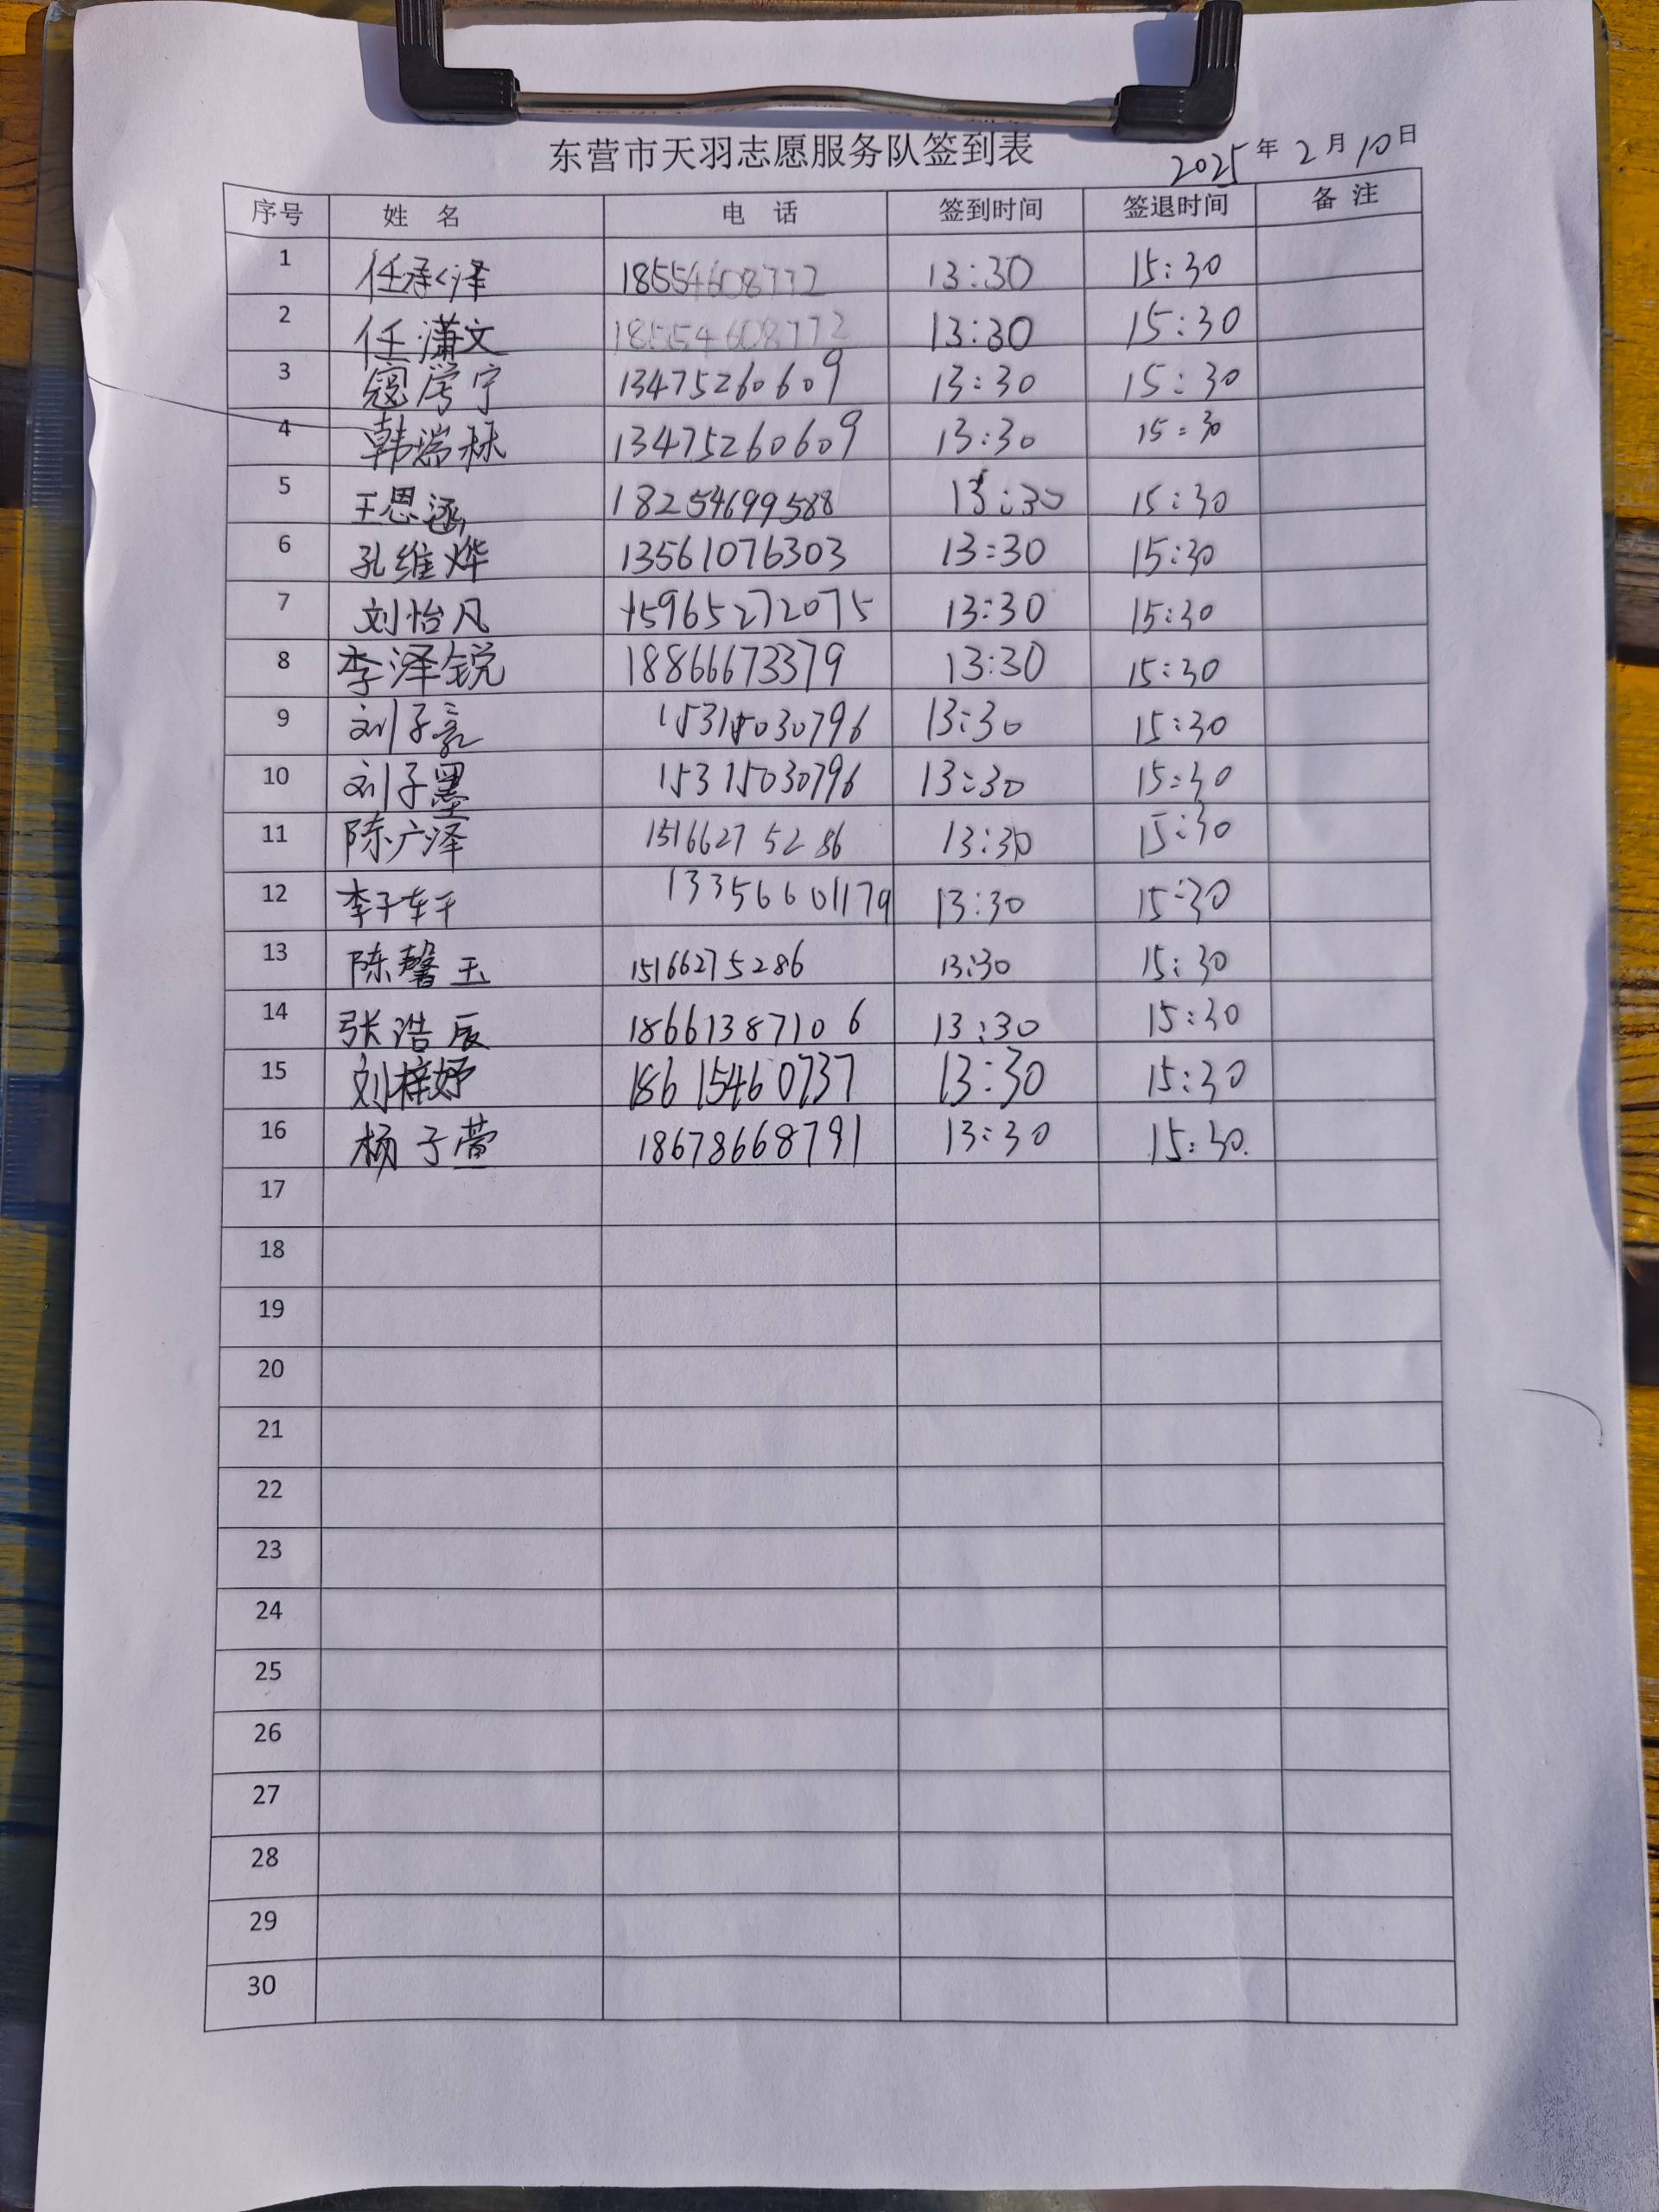 东营市天羽志愿服务队签到表
2025年2月10日
序号 姓名 电话 签到时间 签退时间 备注
1 任承泽 18554608772 13:30 15:30
2 任潇文 18554608772 13:30 15:30
3 寇学宁 13475260609 13:30 15:30
4 韩瑞秝 13475260609 13:30 15:30
5 王思涵 18254699588 13:30 15:30
6 孔维烨 13561076303 13:30 15:30
7 刘怡凡 15965272075 13:30 15:30
8 李泽锐 18866673379 13:30 15:30
9 刘子 15315030796 13:30 15:30
10 刘子墨 15315030796 13:30 15:30
11 陈广泽 15166275286 13:30 15:30
12 李子轩 13356601179 13:30 15:30
13 陈馨玉 15166275286 13:30 15:30
14 张浩辰 18661387106 13:30 15:30
15 刘梓妤 18615460737 13:30 15:30
16 杨子萱 18678668791 13:30 15:30
17
18
19
20
21
22
23
24
25
26
27
28
29
30